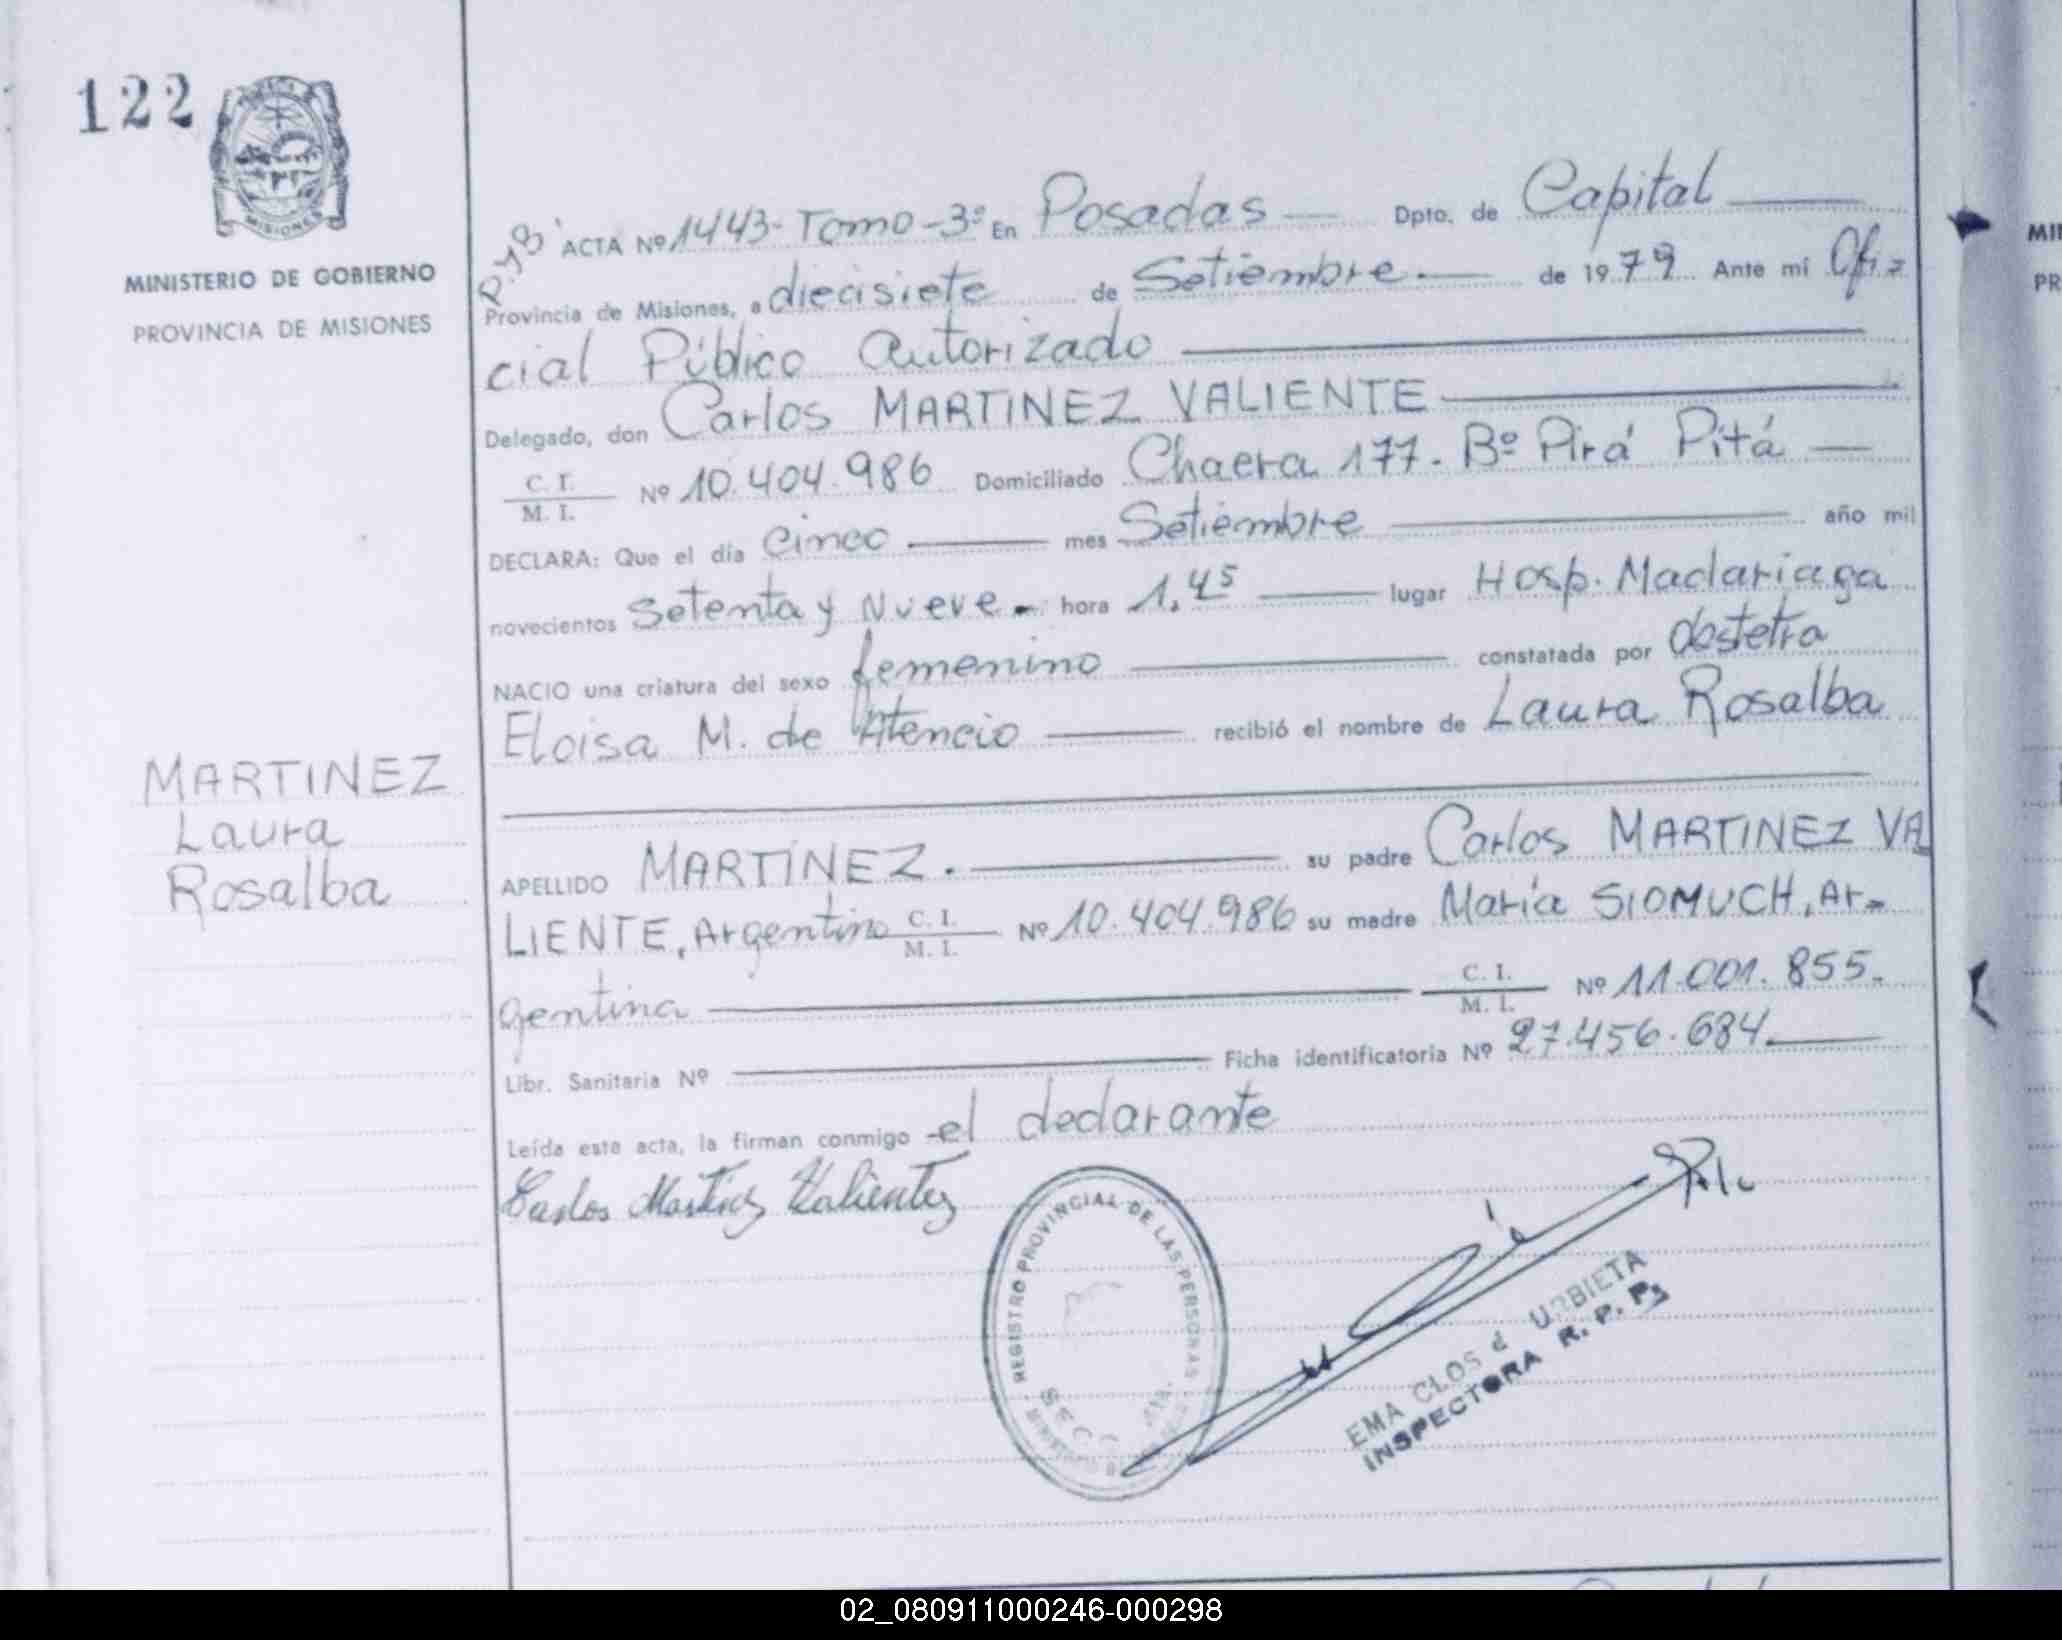 122
MISIONES
MINISTERIO DE GOBIERNO
PROVINCIA DE MISIONES
MARTINEZ
Laura
Rosalba
ACTA Nº 1443- Tomo -3º En Posadas Dpto. de Capital
Provincia de Misiones, a diecisiete de Setiembre de 1979 Ante mi Ofi=
cial Público Autorizado
Delegado, don Carlos MARTINEZ VALIENTE
C. I.
M. I. Nº 10.404.986 Domiciliado Chacra 177. Bº Pirá Pitá
DECLARA: Que el día cinco mes Setiembre año mil
novecientos Setenta y Nueve hora 1,45 lugar Hosp. Madariaga
NACIO una criatura del sexo femenino constatada por obstetra
Eloisa M. de Atencio recibió el nombre de Laura Rosalba
APELLIDO MARTINEZ. su padre Carlos MARTINEZ VA
LIENTE, Argentino C. I. M. I. Nº 10.404.986 su madre María SIOMUCH, Ar=
gentina C. I. M. I. Nº 11.001.855.
Libr. Sanitaria Nº Ficha identificatoria Nº 27.456.684
Leída esta acta, la firman conmigo el declarante
Carlos Martinez Valiente
REGISTRO PROVINCIAL DE LAS PERSONAS
EMA CLOS d URBIETA
INSPECTORA R. P. P.
02_080911000246-000298